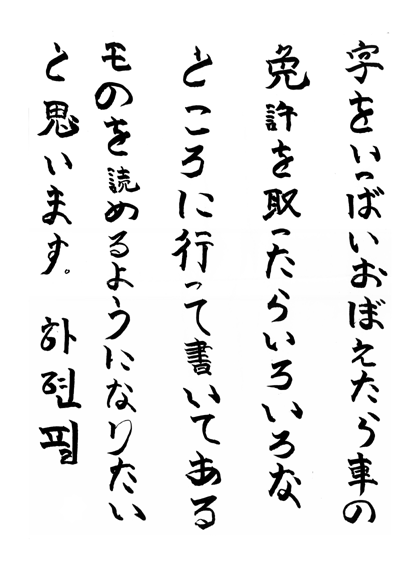 字をいっぱいおぼえたら車の
免許を取ったらいろいろな
ところに行って書いてある
モのを読めるようになりたい
と思います。 하련필